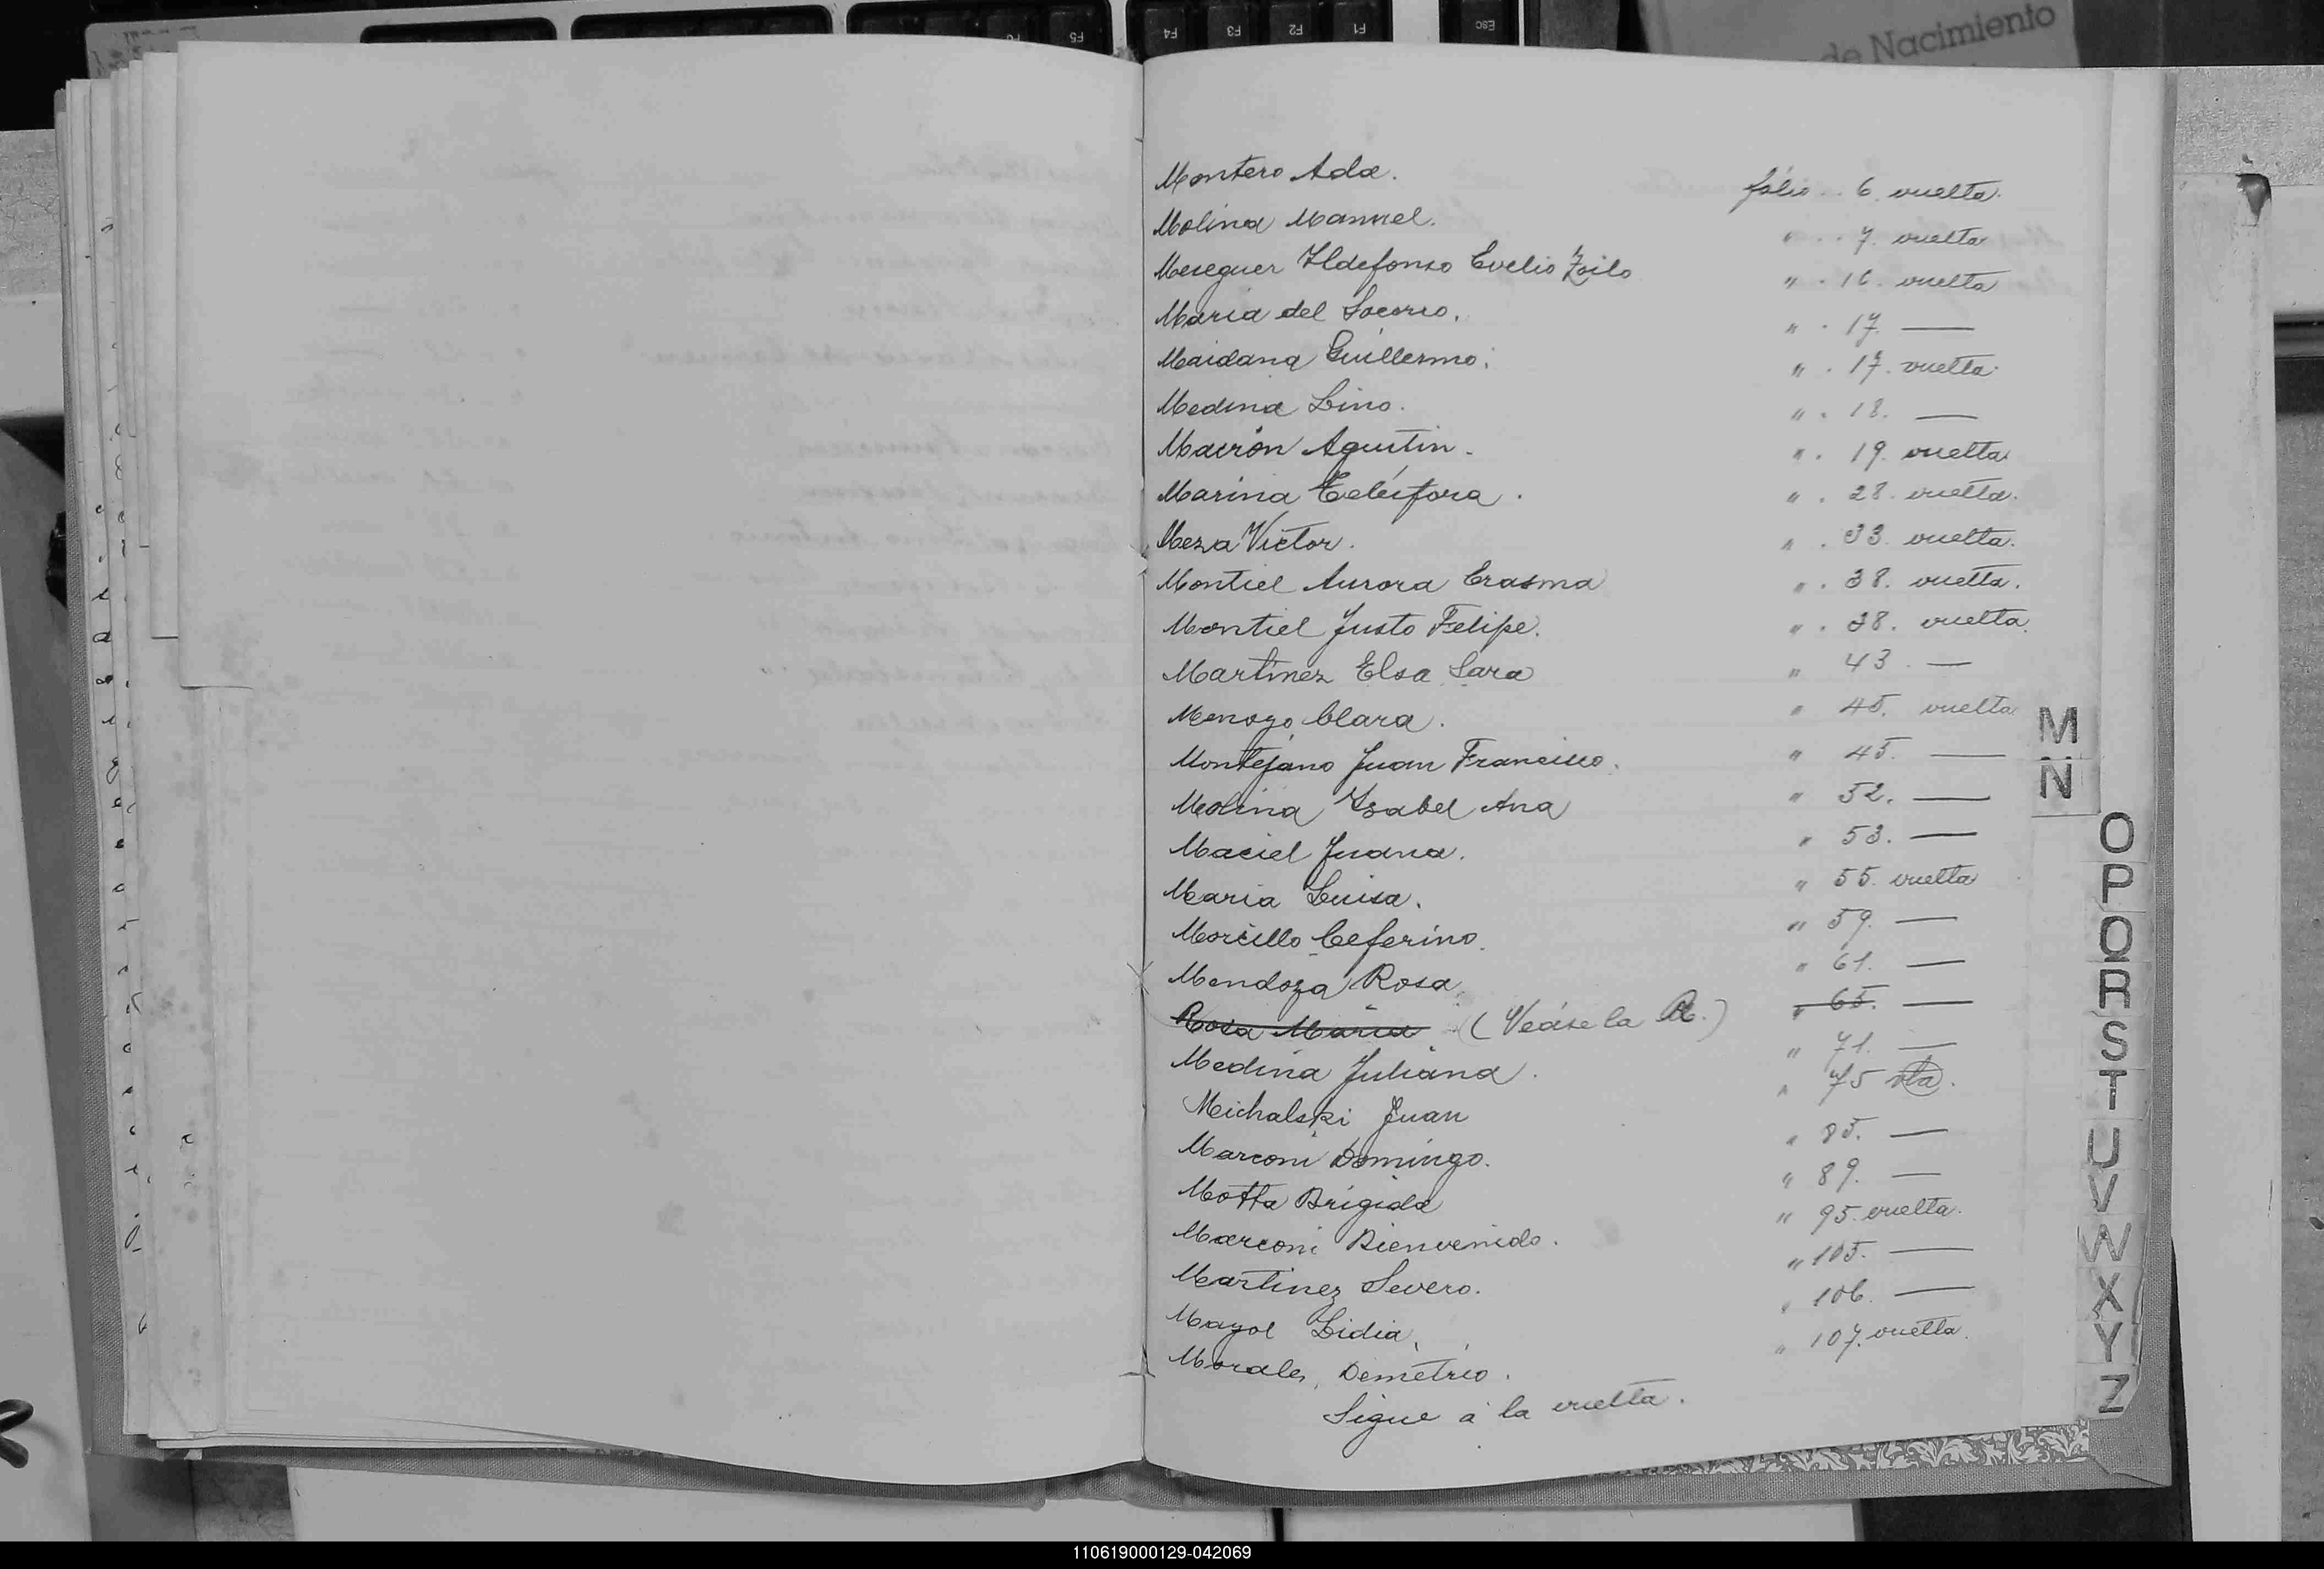 de Nacimiento
Montero Ada. fólio .. 6. vuelta.
Molina Manuel. " .. 7. vuelta
Meseguer Ildefonso Evelio Zoilo " . 16. vuelta
Maria del Socorro. " . 17. —
Maidana Guillermo. " . 17. vuelta.
Medina Lino. " . 18. —
Mairón Agustin. " . 19. vuelta
Marina Telésfora. " . 28. vuelta.
Meza Victor. " . 33. vuelta.
Montiel Aurora Erasma " . 38. vuelta.
Montiel Justo Felipe. " . 38. vuelta.
Martínez Elsa Sara " 43. —
Monozo Clara. " 45. vuelta
Montejano Juan Francisco. " 45. —
Molina Isabel Ana " 52. —
Maciel Juana. " 53. —
Maria Luisa. " 55. vuelta
Morcillo Ceferino. " 59. —
Mendoza Rosa " 61. —
Rosa Maria (Veáse la R.) " 65. —
Medina Juliana. " 71. —
Michalski Juan " 75 vta.
Marconi Domingo. " 85. —
Motta Brigida " 89. —
Marconi Bienvenido. " 95. vuelta.
Martinez Severo. " 105. —
Mayol Lidia. " 106. —
Morales, Demetrio. " 107. vuelta.
Sigue a la vuelta.
M
N
O
P
Q
R
S
T
U
V
W
X
Y
Z
F5
F4
F3
F2
F1
Esc
110619000129-042069